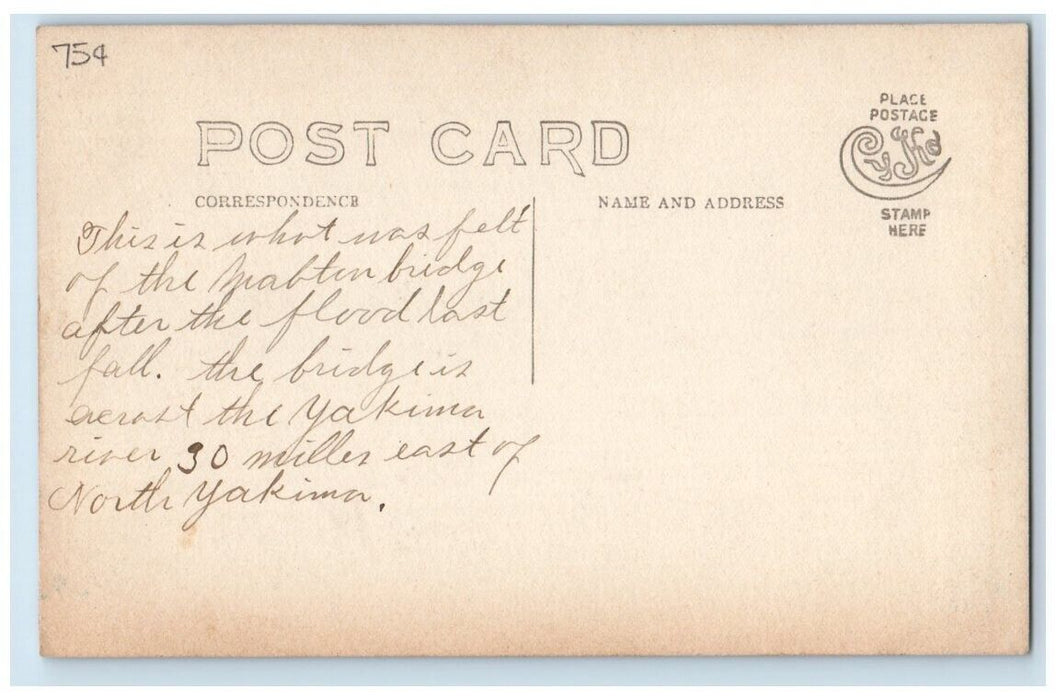 75¢
POST CARD
CORRESPONDENCE
NAME AND ADDRESS
PLACE
POSTAGE
CYKO
STAMP
HERE
This is what was felt
of the Mabton bridge
after the flood last
fall. the bridge is
acrost the Yakima
river 30 milles east of
North Yakima.